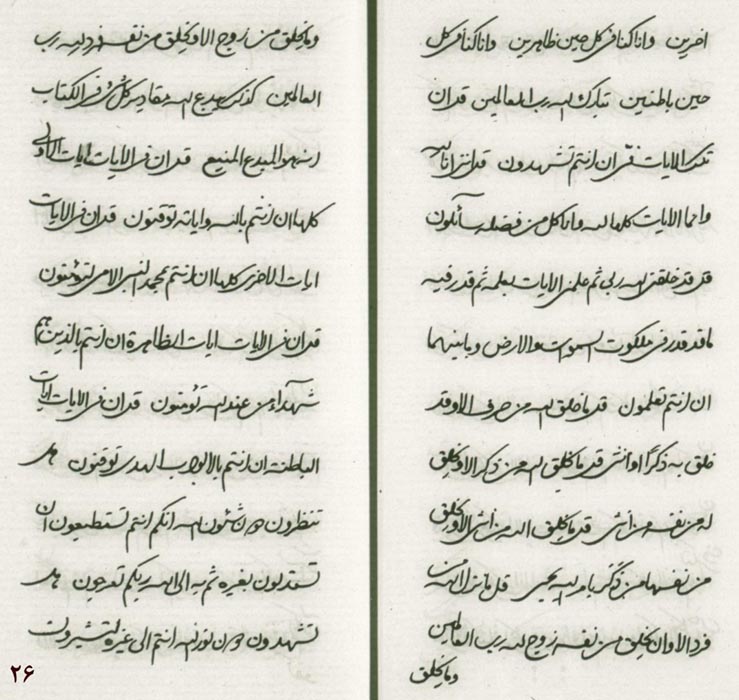 اخرين وانا كنا فى كل حين ظاهرين وانا كنا فى كل
حين باطنين تبارك الله رب العالمين قد ان
تلك الايات فقران انتم تشهدون قد انزلنا
وانما الايات كلها لله وانا كل من فضله سائلون
قل قد خلقنى الله ربى ثم علمنى الايات بعلمه ثم قدر فيه
ما قد قدر فى ملكوت السموات والارض وما بينهما
ان انتم تعلمون قد ما خلق الله من حرف الا وقد
خلق به ذكرا او انثى قد ما يخلق الله من ذكر الا ويخلق
له من نفسه من انثى قد ما يخلق الله من انثى الا ويخلق
من نفسها من ذكر بامر الله يحيى قل ما نزل الله من
فرد الا وان يخلق من نفسه زوج لله رب العالمين
وما يخلق
وما يخلق من زوج الا ويخلق من نفسه فرد لله رب
العالمين كذلك يبدع الله مقادير كل شىء فى الكتاب
انه هو المبدع المنيع قد ان فى الايات ايات الاولى
كلها ان انتم بالله واياته توقنون قد ان فى الايات
ايات الاخرى كلها ان انتم بمحمد النبى الامى لتؤمنون
قد ان فى الايات ايات الظاهرة ان انتم بالذين هم
شهداء من عند الله تؤمنون قد ان فى الايات ايات
الباطنة ان انتم بالابواب الهدى توقنون هل
تنظرون من شئون الله انكم انتم تستطيعون ان
تستدلون بغيره ثم به الى الله ربكم تعرجون هل
تشهدون من نور الله انتم الى غيره لتشيرون
٢۶